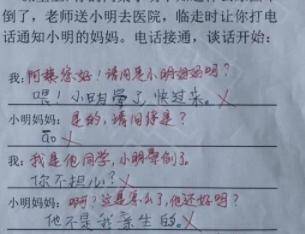 倒了，老师送小明去医院，临走时让你打电
话通知小明的妈妈。电话接通，谈话开始：
我：阿姨您好！请问是小明妈妈吗？
喂！小明晕了，快过来。
小明妈妈：是的，请问你是？
我：我是他同学，小明晕倒了。
你不担心？
小明妈妈：啊？这是怎么了，他还好吗？
他不是我亲生的。